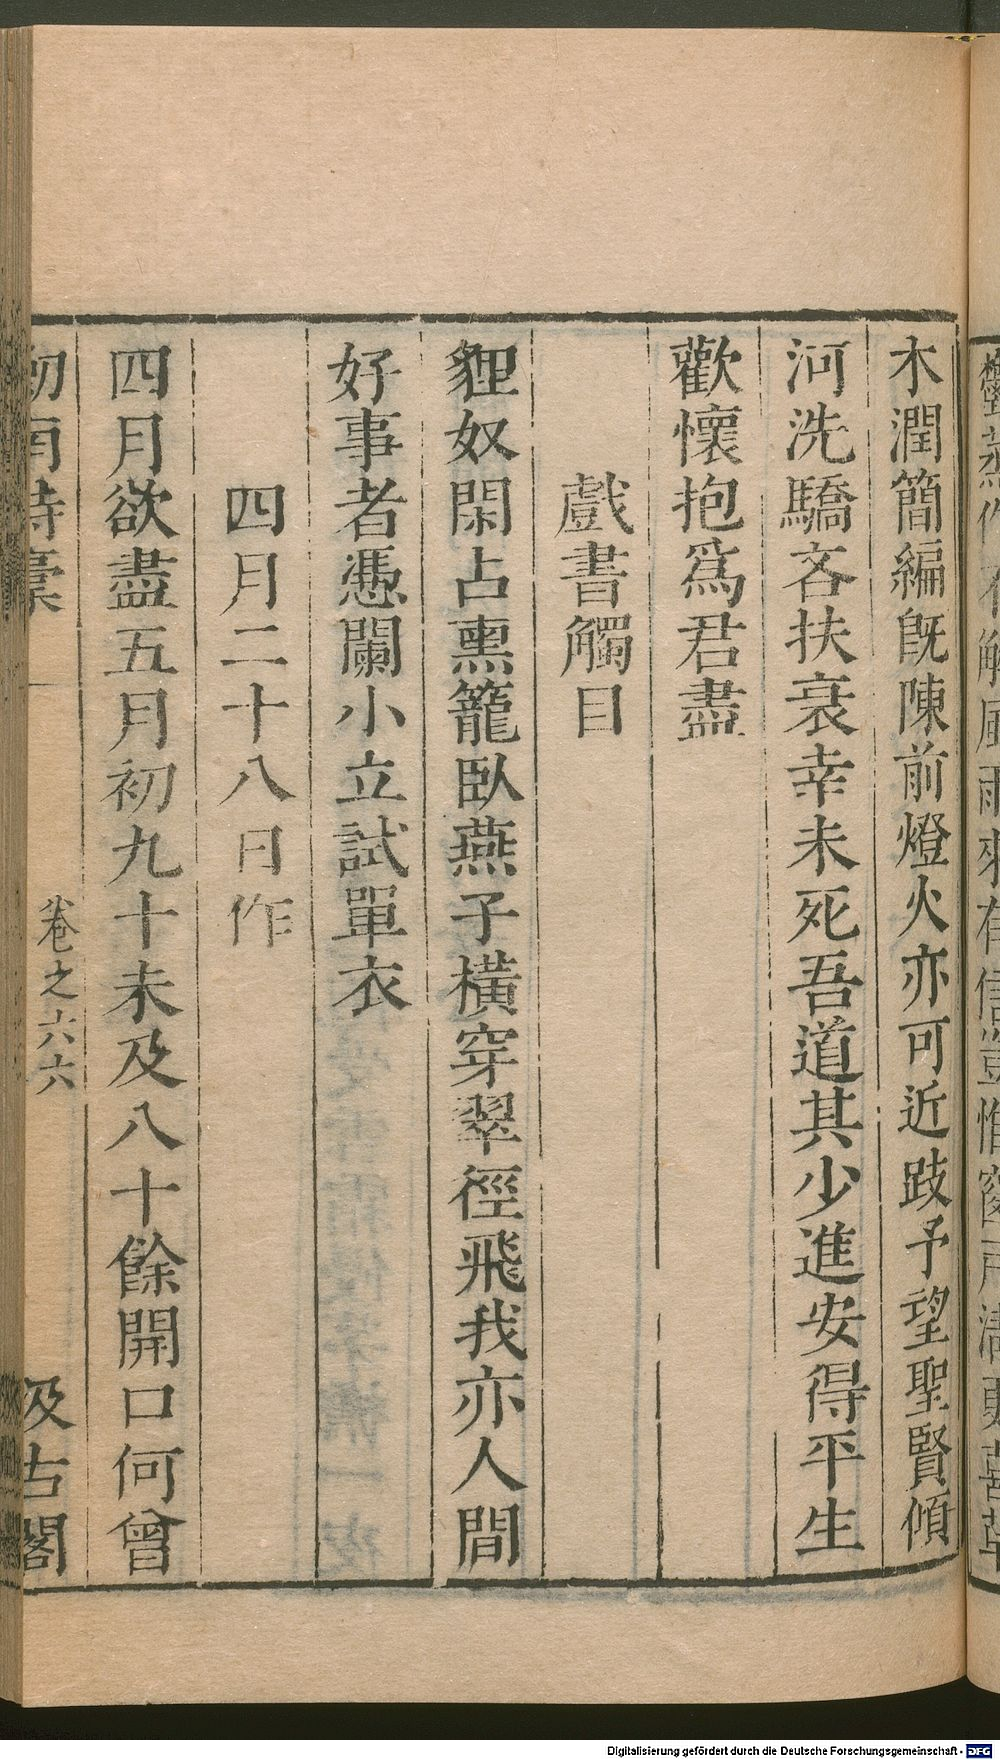 木潤簡編既陳前燈火亦可近跂予望聖賢傾
河洗驕吝扶衰幸未死吾道其少進安得平生
歡懷抱爲君盡
戲書觸目
貍奴閑占熏籠臥燕子橫穿翠徑飛我亦人間
好事者憑闌小立試單衣
四月二十八日作
四月欲盡五月初九十未及八十餘開口何曾
劒南詩稾
卷之六六
汲古閣
Digitalisierung gefördert durch die Deutsche Forschungsgemeinschaft - DFG